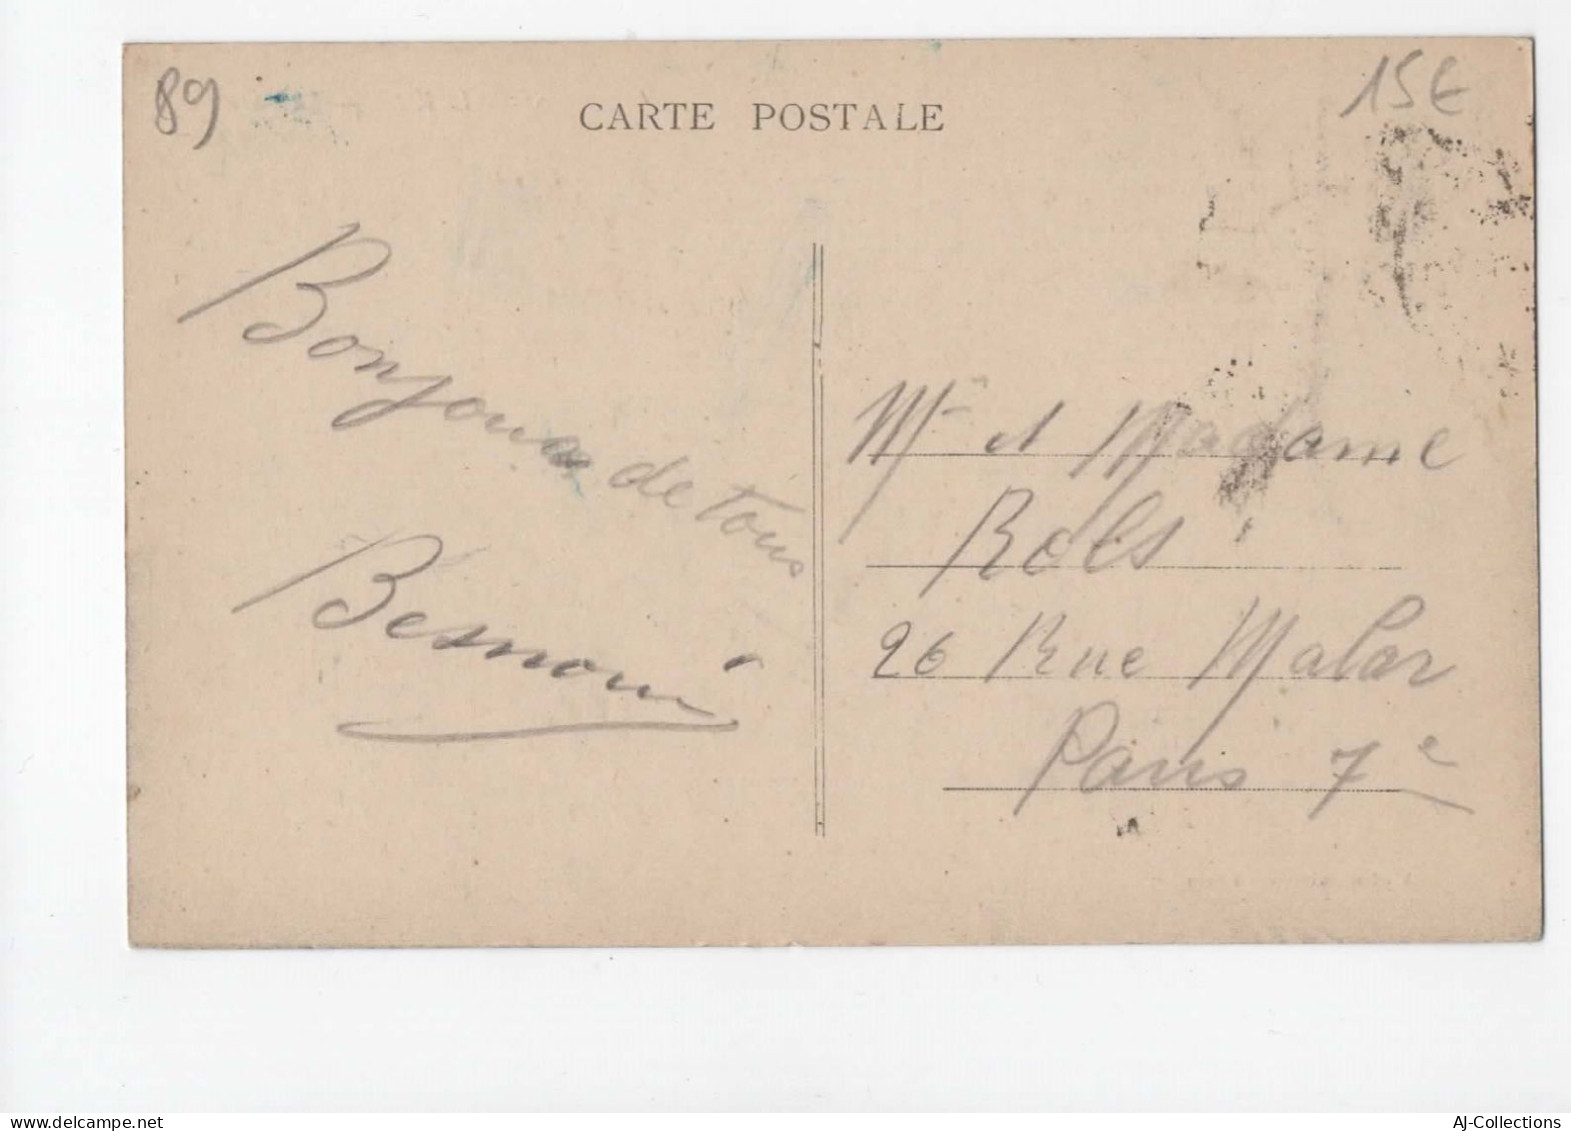 89
15€
CARTE POSTALE
Bonjour de tous
Mr et Madame
Rols
26 Rue Malar
Paris 7e
www.delcampe.net
AJ-Collections